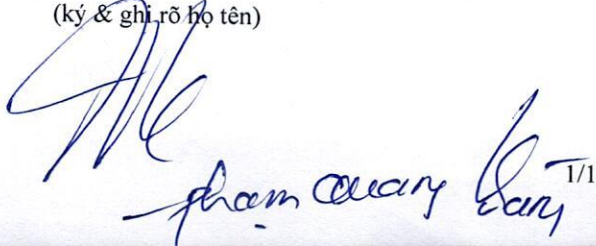 (ký & ghi rõ họ tên)
Phạm Quang
1/1